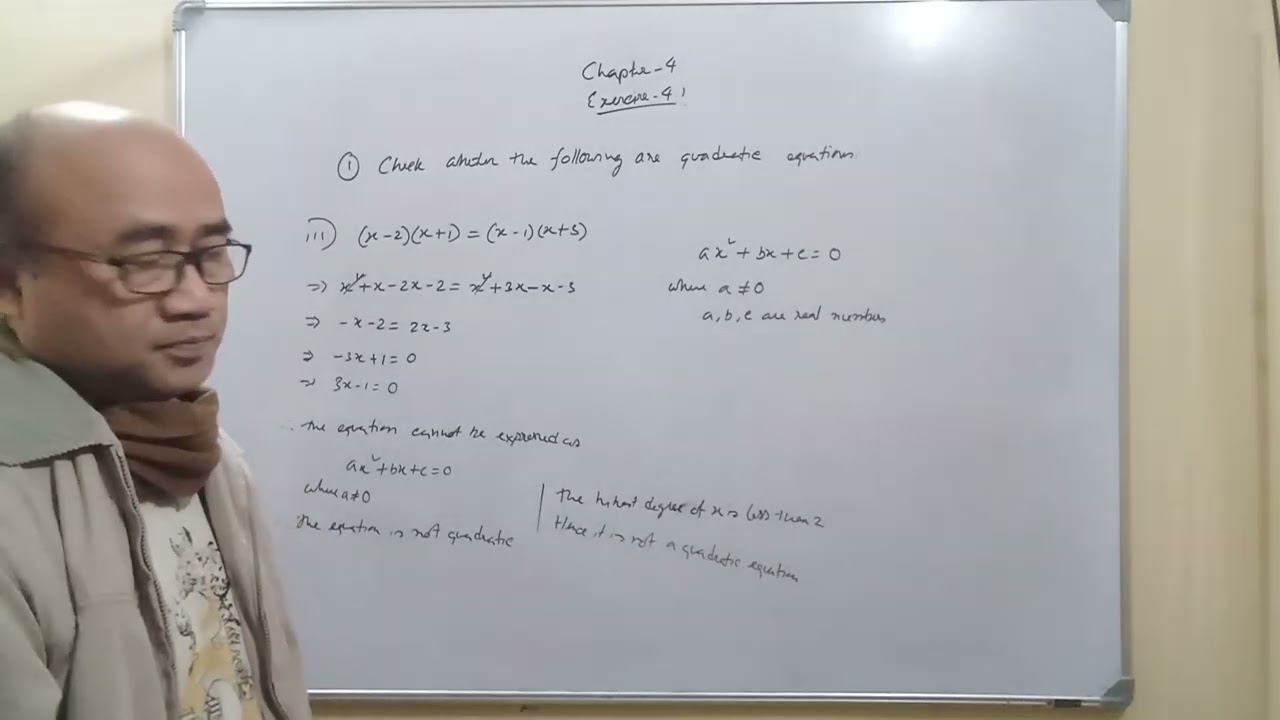 Chapter-4
Exercise-4.1
① Check whether the following are quadratic equations
iii) (x-2)(x+1) = (x-1)(x+3)
⇒ x²+x-2x-2 = x²+3x-x-3
⇒ -x-2 = 2x-3
⇒ -3x+1 = 0
⇒ 3x-1 = 0
the equation cannot be expressed as
ax²+bx+c=0
where a≠0
The equation is not quadratic
The highest degree of x is less than 2
Hence it is not a quadratic equation
ax²+bx+c=0
where a≠0
a, b, c are real numbers